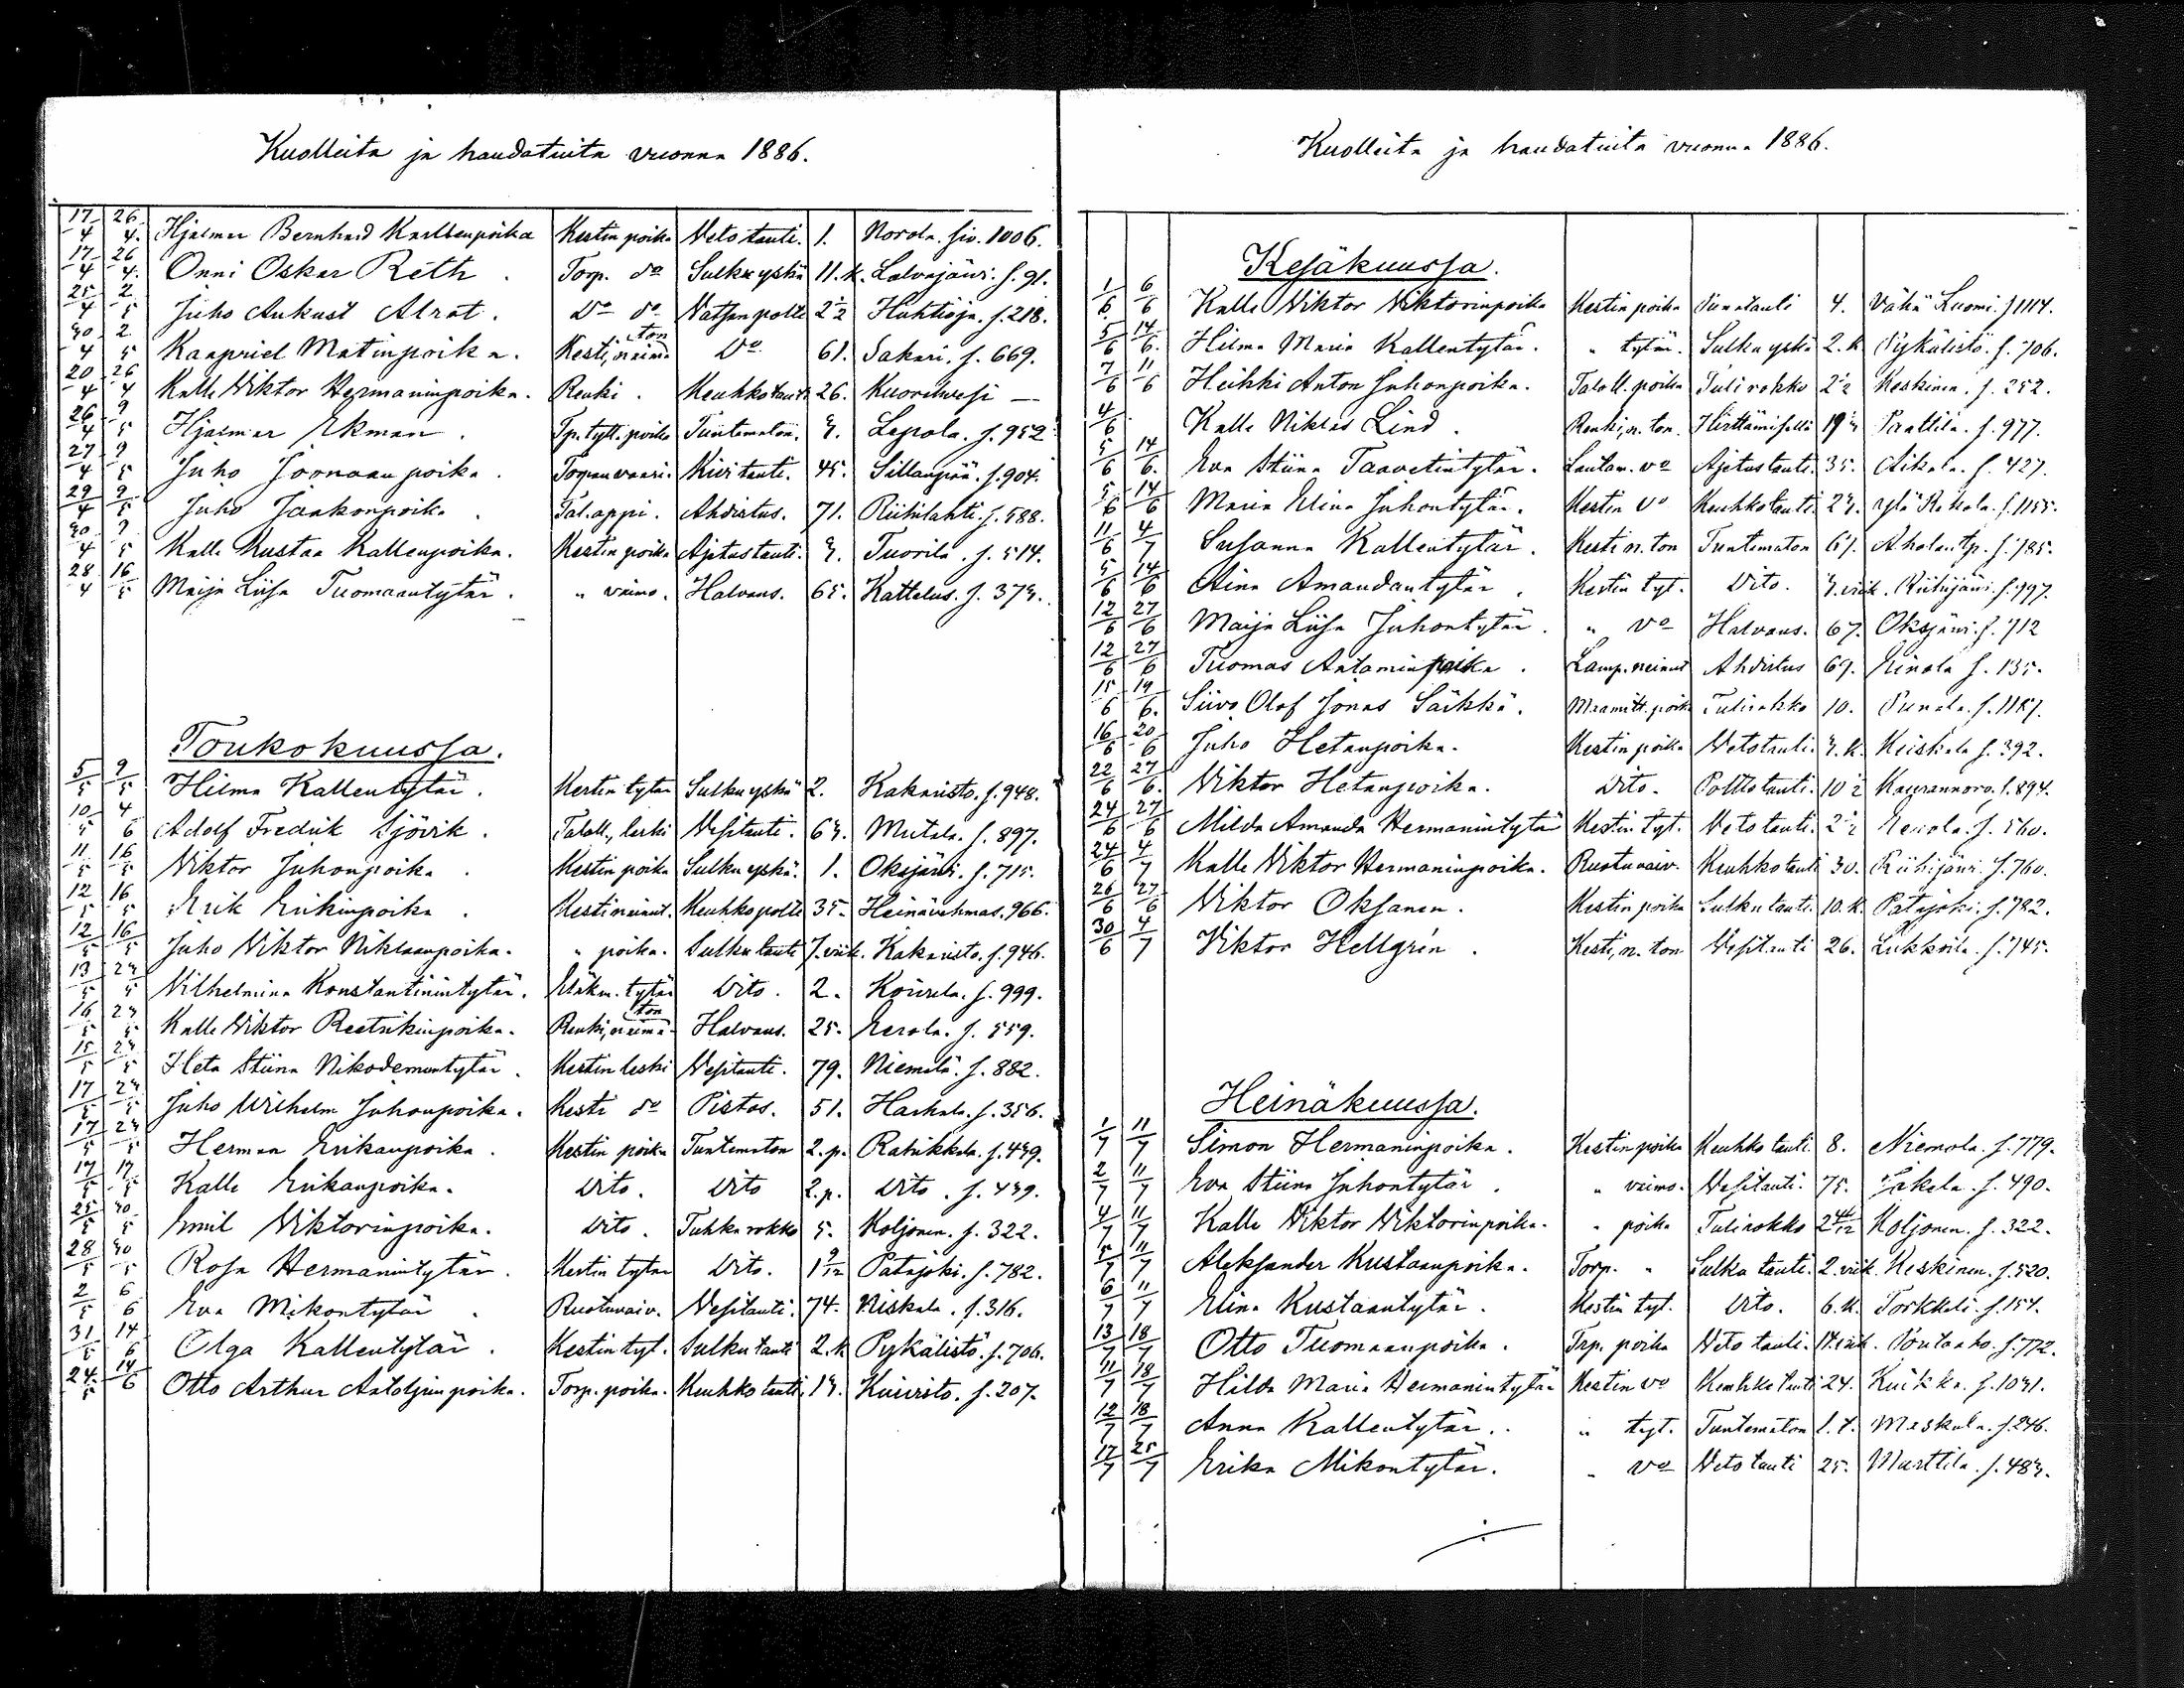 Kuolleita ja haudatuita vuonna 1886.
17/4 26/4. Hjalmar Bernhard Karllenpoika Kestin poika Veto tauti. 1. Norola. siv. 1006.
17/4 26/4. Onni Oskar Reth. Torp. do Sulku yskä 11.k. Lalvajärvi. s. 91.
25/4 2/5 Juho Aukust Alrot. Do do Vatsan poltt 2½ Huhtioja. s. 218.
30/4 2/5 Kaapriel Matinpoika. Kesti, naimaton Do 61. Sakari. s. 669.
20/4 26/4 Kalle Viktor Hermaninpoika. Renki. Keuhkotauti 26. Kuorehvesi —
26/4 9/5 Hjalmar Ekman. Tp. tytt. poika Tuntematoin. 3. Lepola. s. 952.
27/4 9/5 Juho Joonaanpoika. Torpanvaari. Kivi tauti. 45. Sillanpää. s. 904.
29/4 9/5 Juho Jaakonpoika. Tal. appi. Ahdistus. 71. Riihilahti. s. 588.
30/4 9/5 Kalle Kustaa Kallenpoika. Kestin poika Ajetustauti. 3. Tuorila. s. 514.
28/4 16/5 Maija Liisa Tuomaantytär. " vaimo. Halvaus. 65. Kattelus. s. 373.
Toukokuussa.
5/5 9/5 Hilma Kallentytär. Kestin tytär Sulku yskä 2. Kakaristo. s. 948.
10/5 4/6 Adolf Fredrik Sjövik. Taloll. leski Vesitauti. 63. Mutala. s. 897.
11/5 16/5 Viktor Juhonpoika. Kestin poika Sulku yskä. 1. Oksjärvi. s. 715.
12/5 16/5 Erik Erikinpoika. Kesti nainut. Keuhko poltt 35. Heinävehmas. 966.
12/5 16/5 Juho Viktor Niklaanpoika. " poika. Sulku tauti 7. viik. Kakaristo. s. 946.
13/5 23/5 Vilhelmina Konstantinintytär. Mäkm. tytär Dito. 2. Koivula. s. 999.
16/5 23/5 Kalle Viktor Reetrikinpoika. Renki, naimaton Halvaus. 25. Eerola. s. 559.
15/5 23/5 Heta Stiina Nikodemuntytär. Kestin leski Vesitauti. 79. Niemelä. s. 882.
17/5 23/5 Juho Wilhelm Juhonpoika. Kesti do Pistos. 51. Harhala. s. 356.
17/5 23/5 Herman Erikanpoika. Kestin poika Tuntematon 2. p. Ratukkala. s. 439.
17/5 17/5 Kalle Erikanpoika. Dito. Dito 2. p. Dito. s. 439.
25/5 30/5 Emil Viktorinpoika. Dito. Tuhka rokko 5. Koljonen. s. 322.
28/5 30/5 Rosa Hermanintytär. Kestin tytär Dito. 1 9/12 Patajoki. s. 782.
2/5 6/6 Eva Mikontytär Ruotuvaiv. Vesitauti. 74. Niskala. s. 316.
31/5 14/6 Olga Kallentytär. Kestin tyt. Sulku tauti 2. k. Pykälistö. s. 706.
24/5 14/6 Otto Arthur Astolfinpoika. Torp. poika. Keuhko tauti. 13. Kuivisto. s. 207.
Kuolleita ja haudatuita vuonna 1886.
Kesäkuussa.
1/6 6/6 Kalle Viktor Viktorinpoika Kestin poika Punatauti 4. Vähä Luomi. s 1114.
5/6 14/6. Hilma Maria Kallentytär. " tytär. Sulku yskä 2. k Pykälistö. s. 706.
7/6 11/6 Heikki Anton Juhonpoika. Taloll. poika Tulirokko 2½ Keskinen. s. 252.
4/6 Kalle Niklas Lind. Renki, n. ton. Hirttämisellä 19½ Paattila. s. 977.
5/6 14/6. Eva Stiina Taavetintytär. Lautam. vo Ajetus tauti. 35. Aikala. s. 427.
5/6 14/6 Maria Elina Juhontytär. Kestin Vo Keuhkotauti 23. Ylä Rekola. s. 1155.
11/6 4/7 Susanna Kallentytär. Kesti n. ton Tuntematon 61. Aholan tp. s. 785.
5/6 14/6 Aina Amandantytär. Kestin tyt. Dito. 3. viik. Riihijärvi. s. 797.
12/6 27/6 Maija Liisa Juhontytär. " Vo Halvaus. 67. Oksjärvi. s. 712
12/6 27/6 Tuomas Aataminpoika. Lamp. nainut Ahdistus 69. Einola s. 135.
15/6 19/6. Siivo Olof Jonas Särkkä. Maamitt. poika Tulirokko 10. Punala. s. 1187.
16/6 20/6 Juho Hetanpoika. Kestin poika Vetotauti. 3. k. Keiskala s. 392.
22/6 27/6. Viktor Hetanpoika. Dito. Polttotauti. 10½ Kaurannoro. s. 894.
24/6 27/6 Milda Amanda Hermanintytär Kestin tyt. Veto tauti. 2½ Eerola. s. 560.
24/6 4/7 Kalle Viktor Hermaninpoika. Ruotuvaiv. Keuhko tauti 30. Riihijärvi. s. 760.
26/6 27/6 Viktor Oksanen. Kestin poika Sulku tauti. 10. k. Patajoki. s. 782.
30/6 4/7 Viktor Hellgrén. Kesti, n. ton Vesitauti 26. Liikkoila. s. 745.
Heinäkuussa.
1/7 11/7 Simon Hermaninpoika. Kestin poika Keuhko tauti. 8. Niemola. s. 779.
2/7 11/7 Eva Stiina Juhontytär. " vaimo. Vesitauti. 75. Jäkälä. s. 490.
4/7 11/7 Kalle Viktor Viktorinpoika. " poika Tulirokko 2 4/12 Koljonen. s. 322.
5/7 11/7 Aleksander Kustaanpoika. Torp. " Sulku tauti. 2. viik. Keskinen. s. 520.
6/7 11/7 Elina Kustaantytär. Kestin tyt. Dito. 6. k. Torkkeli. s. 154.
13/7 18/7 Otto Tuomaanpoika. Torp. poika Veto tauti. 14. viik. s. 772.
11/7 18/7 Hilda Maria Hermanintytär Kestin vo Keuhko tauti 24. Kuikka. s. 1031.
12/7 18/7 Anna Kallentytär. " tyt. Tuntematon Maskala. s. 246.
17/7 25/7 Erika Mikontytär. " vo Veto tauti 25. Murttila. s. 483.